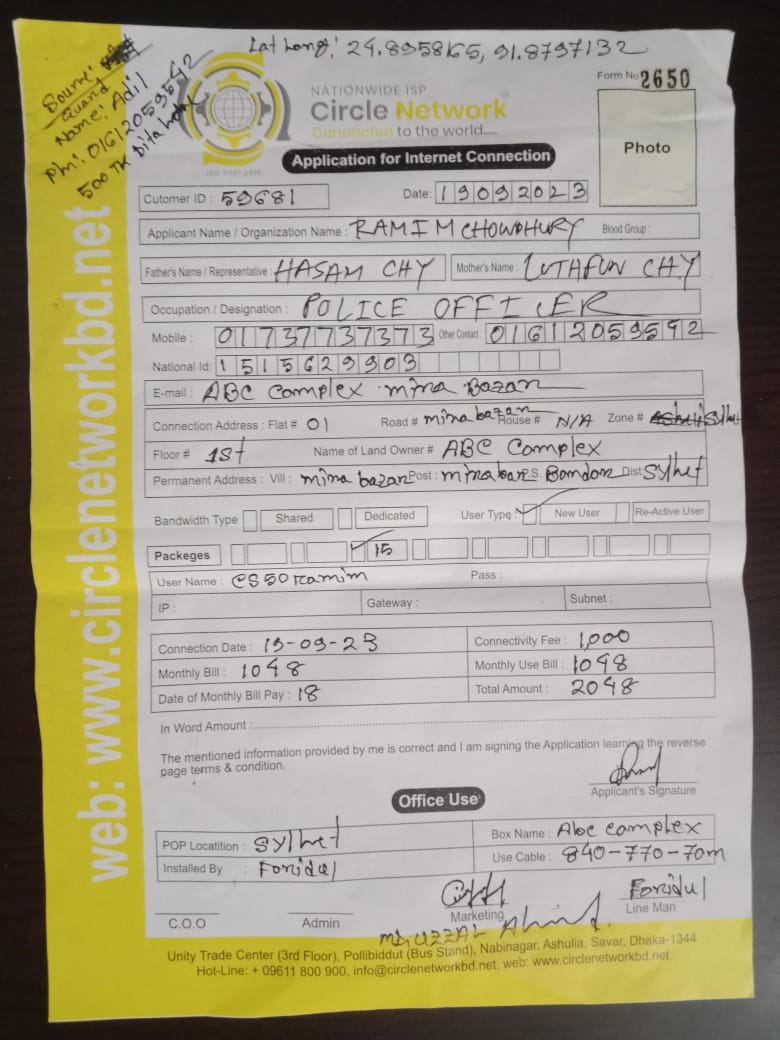 Lat Long: 24.8958165, 91.8797132
Source:
Guard
Name: Adil
Ph: 01612059592
500 TK
NATIONWIDE ISP
Circle Network
Connected to the world.....
ISO 9001:2015
Form No 2650
Photo
Application for Internet Connection
Cutomer ID : 59681
Date: 19092023
Applicant Name / Organization Name : RAMIM CHOWDHURY Blood Group :
Father's Name / Representative : HASAM CHY Mother's Name : LUTHFUN CHY
Occupation / Designation : POLICE OFFICER
Mobile : 01737737373 Other Contact : 01612059592
National Id: 1515629903
E-mail : ABC Complex mira Bazar
Connection Address : Flat # 01 Road # mira bazar House # N/A Zone # Sylhet
Floor # 1st Name of Land Owner # ABC Complex
Permanent Address : Vill : mira bazar Post : P.S. Bondor Dist Sylhet
Bandwidth Type Shared Dedicated User Type: New User Re-Active User
Packeges 15
User Name : CS50ramim Pass :
IP : Gateway : Subnet :
Connection Date : 19-09-23 Connectivity Fee : 1,000
Monthly Bill : 1048 Monthly Use Bill : 1048
Date of Monthly Bill Pay : 18 Total Amount : 2048
In Word Amount :
The mentioned information provided by me is correct and I am signing the Application learning the reverse
page terms & condition.
Applicant's Signature
Office Use
POP Locatition : Sylhet Box Name : Abc complex
Installed By : Foridul Use Cable : 840-770-70m
Foridul
C.O.O Admin Marketing Line Man
MD. UZZAL Ahmed
Unity Trade Center (3rd Floor), Pollibiddut (Bus Stand), Nabinagar, Ashulia, Savar, Dhaka-1344
Hot-Line: + 09611 800 900, info@circlenetworkbd.net, web: www.circlenetworkbd.net
web: www.circlenetworkbd.net